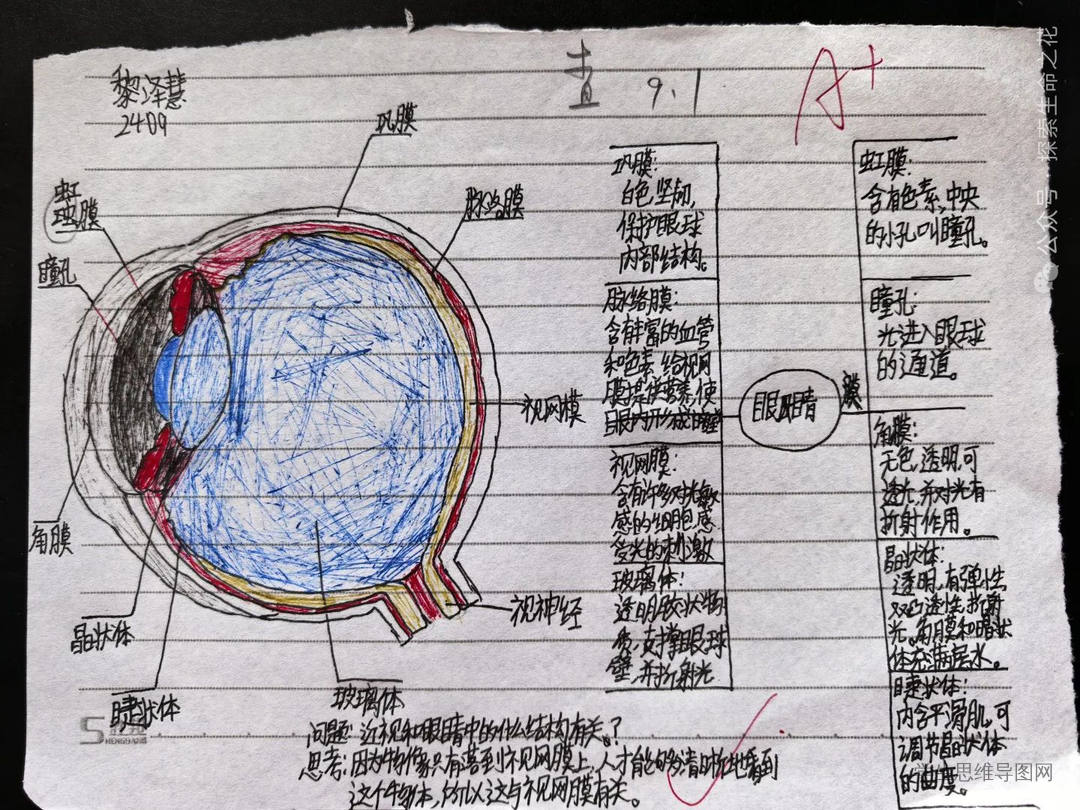 黎泽慧
2409
查
9.1
A+
巩膜
虹膜
脉络膜
瞳孔
视网膜
角膜
视神经
晶状体
睫状体
玻璃体
巩膜:
白色,坚韧,
保护眼球
内部结构。
脉络膜:
含有丰富的血管
和色素,给视网
膜提供营养,使
眼内形成
视网膜:
含有许多对光敏
感的细胞,感
受光的刺激
玻璃体:
透明胶状物
质,支撑眼球
壁,并折射光
眼睛
虹膜:
含有色素,中央
的小孔叫瞳孔。
瞳孔:
光进入眼球
的通道。
角膜:
无色,透明,可
透光,并对光有
折射作用。
晶状体:
透明,有弹性
双凸透性,折
光。角膜和晶状
体充满房水。
睫状体:
内含平滑肌,可
调节晶状体
的曲度。
问题:近视和眼睛中的什么结构有关。?
思考:因为物像只有落到视网膜上,人才能够清晰地看到
这个物体,所以这与视网膜有关。
公众号 探索生命之花
思维导图网